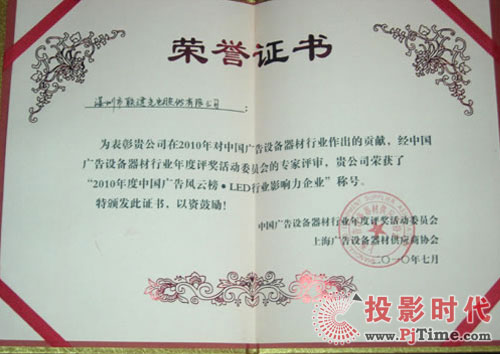 荣誉证书
深圳市联建光电股份有限公司：
为表彰贵公司在2010年对中国广告设备器材行业作出的贡献，经中国
广告设备器材行业年度评奖活动委员会的专家评审，贵公司荣获了
“2010年度中国广告风云榜·LED行业影响力企业”称号。
特颁发此证书，以资鼓励！
中国广告设备器材行业年度评奖活动委员会
上海广告设备器材供应商协会
二〇一〇年七月
投影时代
www.PjTime.com